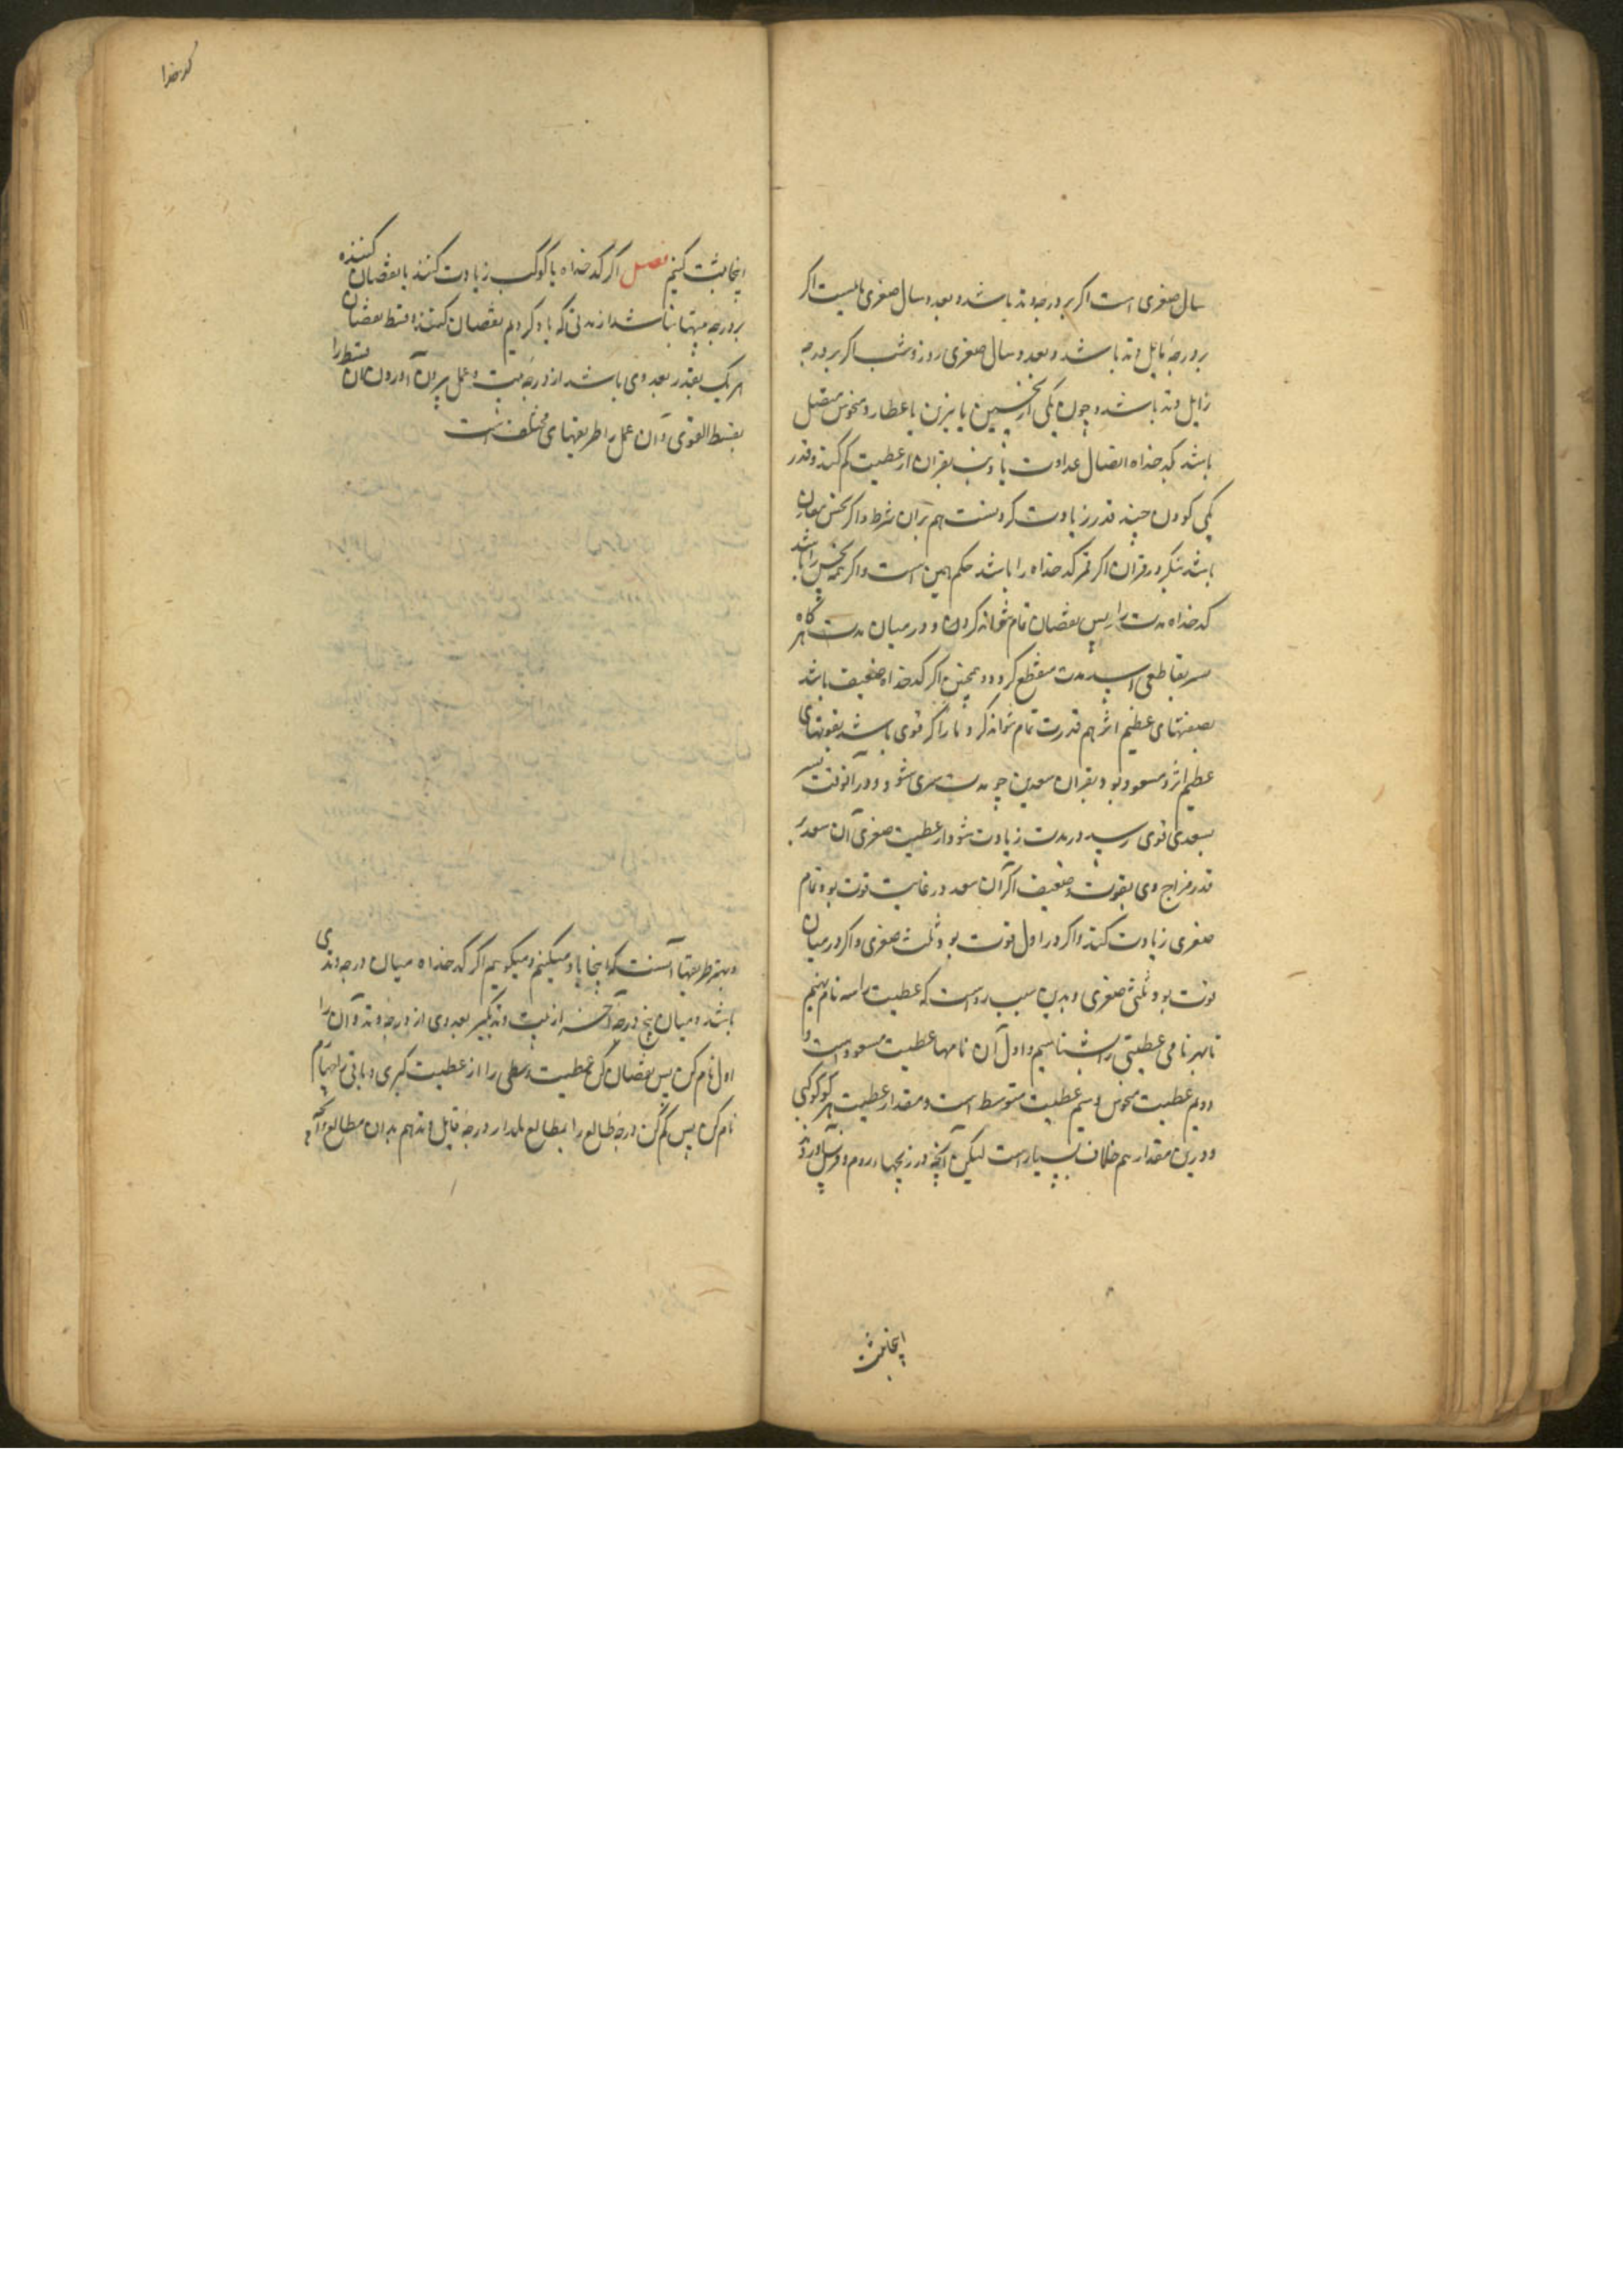 سال صغری است اگر بر درجه وتد باشد و بعدد سال صغری ماهست اگر
بر درجه مایل وتد باشد و بعدد سال صغری روز و شب اگر بر درجه
زایل وتد باشد و چون یکی از نحسین یا نیرین یا عطارد منحوس متصل
باشد بکدخداه اتصال عداوت یا بقران از عطیت کم کند و قدر
کمی کردن چند قدر زیادت کردنست هم بران شرط و اگر نحس مقارن
باشد بنگر در قران اگر قمر کدخداه را باشد حکم همین است و اگر نحس را باشد
کدخداه مدت را پس نقصان تمام نتواند کردن و در میان مدت هر گاه
بقاطعی رسد مدت منقطع گردد و همچنین اگر کدخداه ضعیف باشد
بضعفتهای عظیم اثر هم قدرت تمام نتواند کرد و باز اگر قوی باشد بقوتهای
عظیم اثر و مسعود بود بقران سعدین چو مدت سپری شود و در آنوقت
بسعدی قوی رسد در مدت زیادت شود از عطیت صغری آن سعد بر
قدر مزاج وی بقوت و ضعیف اگر آن سعد در غایت قوت بود تمام
صغری زیادت کند و اگر در اول قوت بود ثلث صغری و اگر در میان
قوت بود ثلثی صغری و بدین سبب رواست که عطیت را سه نام نهیم
تا بهر نامی عطیتی را بشناسیم و اول آن نامها عطیت مسعود است و
دویم عطیت منحوس و سیم عطیت متوسط است و مقدار عطیت هر کوکبی
و درین مقدار هم خلاف بسیار است لیکن آنچه در زیجهاء روم و
اینجا ثبت
کدخدا
اینجا ثبت کنیم فصل اگر کدخداه یا کوکب زیادت کننده یا نقصان کننده
بر درجه بیتها نباشد از مدتی که یاد کردیم نقصان کنند و قسط نقصان
هر یک بقدر بعد وی باشد از درجه بیت و عمل بیرون آوردن آن قسط را
بقسط القوی و آن عمل را طریقتهای مختلف است
و بهتر طریقتها آنست که اینجا یاد میکنیم و میگوییم اگر کدخداه میان درجه وتدی
باشد و میان پنج درجه آخر از بیت وتد بگیر بعد وی از درجه وتد و آن را
اول نام کن پس نقصان کن عطیت وسطی را از عطیت کبری و باقی را
نام کن پس کم کن درجه طالع را بمطالع بلد از درجه مایل وتد هم بدان مطالع و آنچه